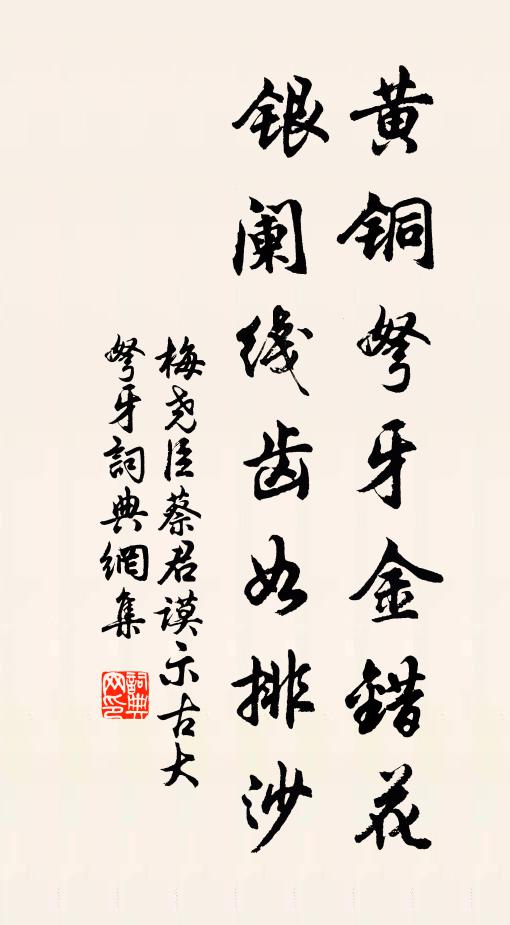 黄铜弩牙金错花
银阑线齿如排沙
梅尧臣蔡君谟示古大
弩牙詞典網集
詞典网印